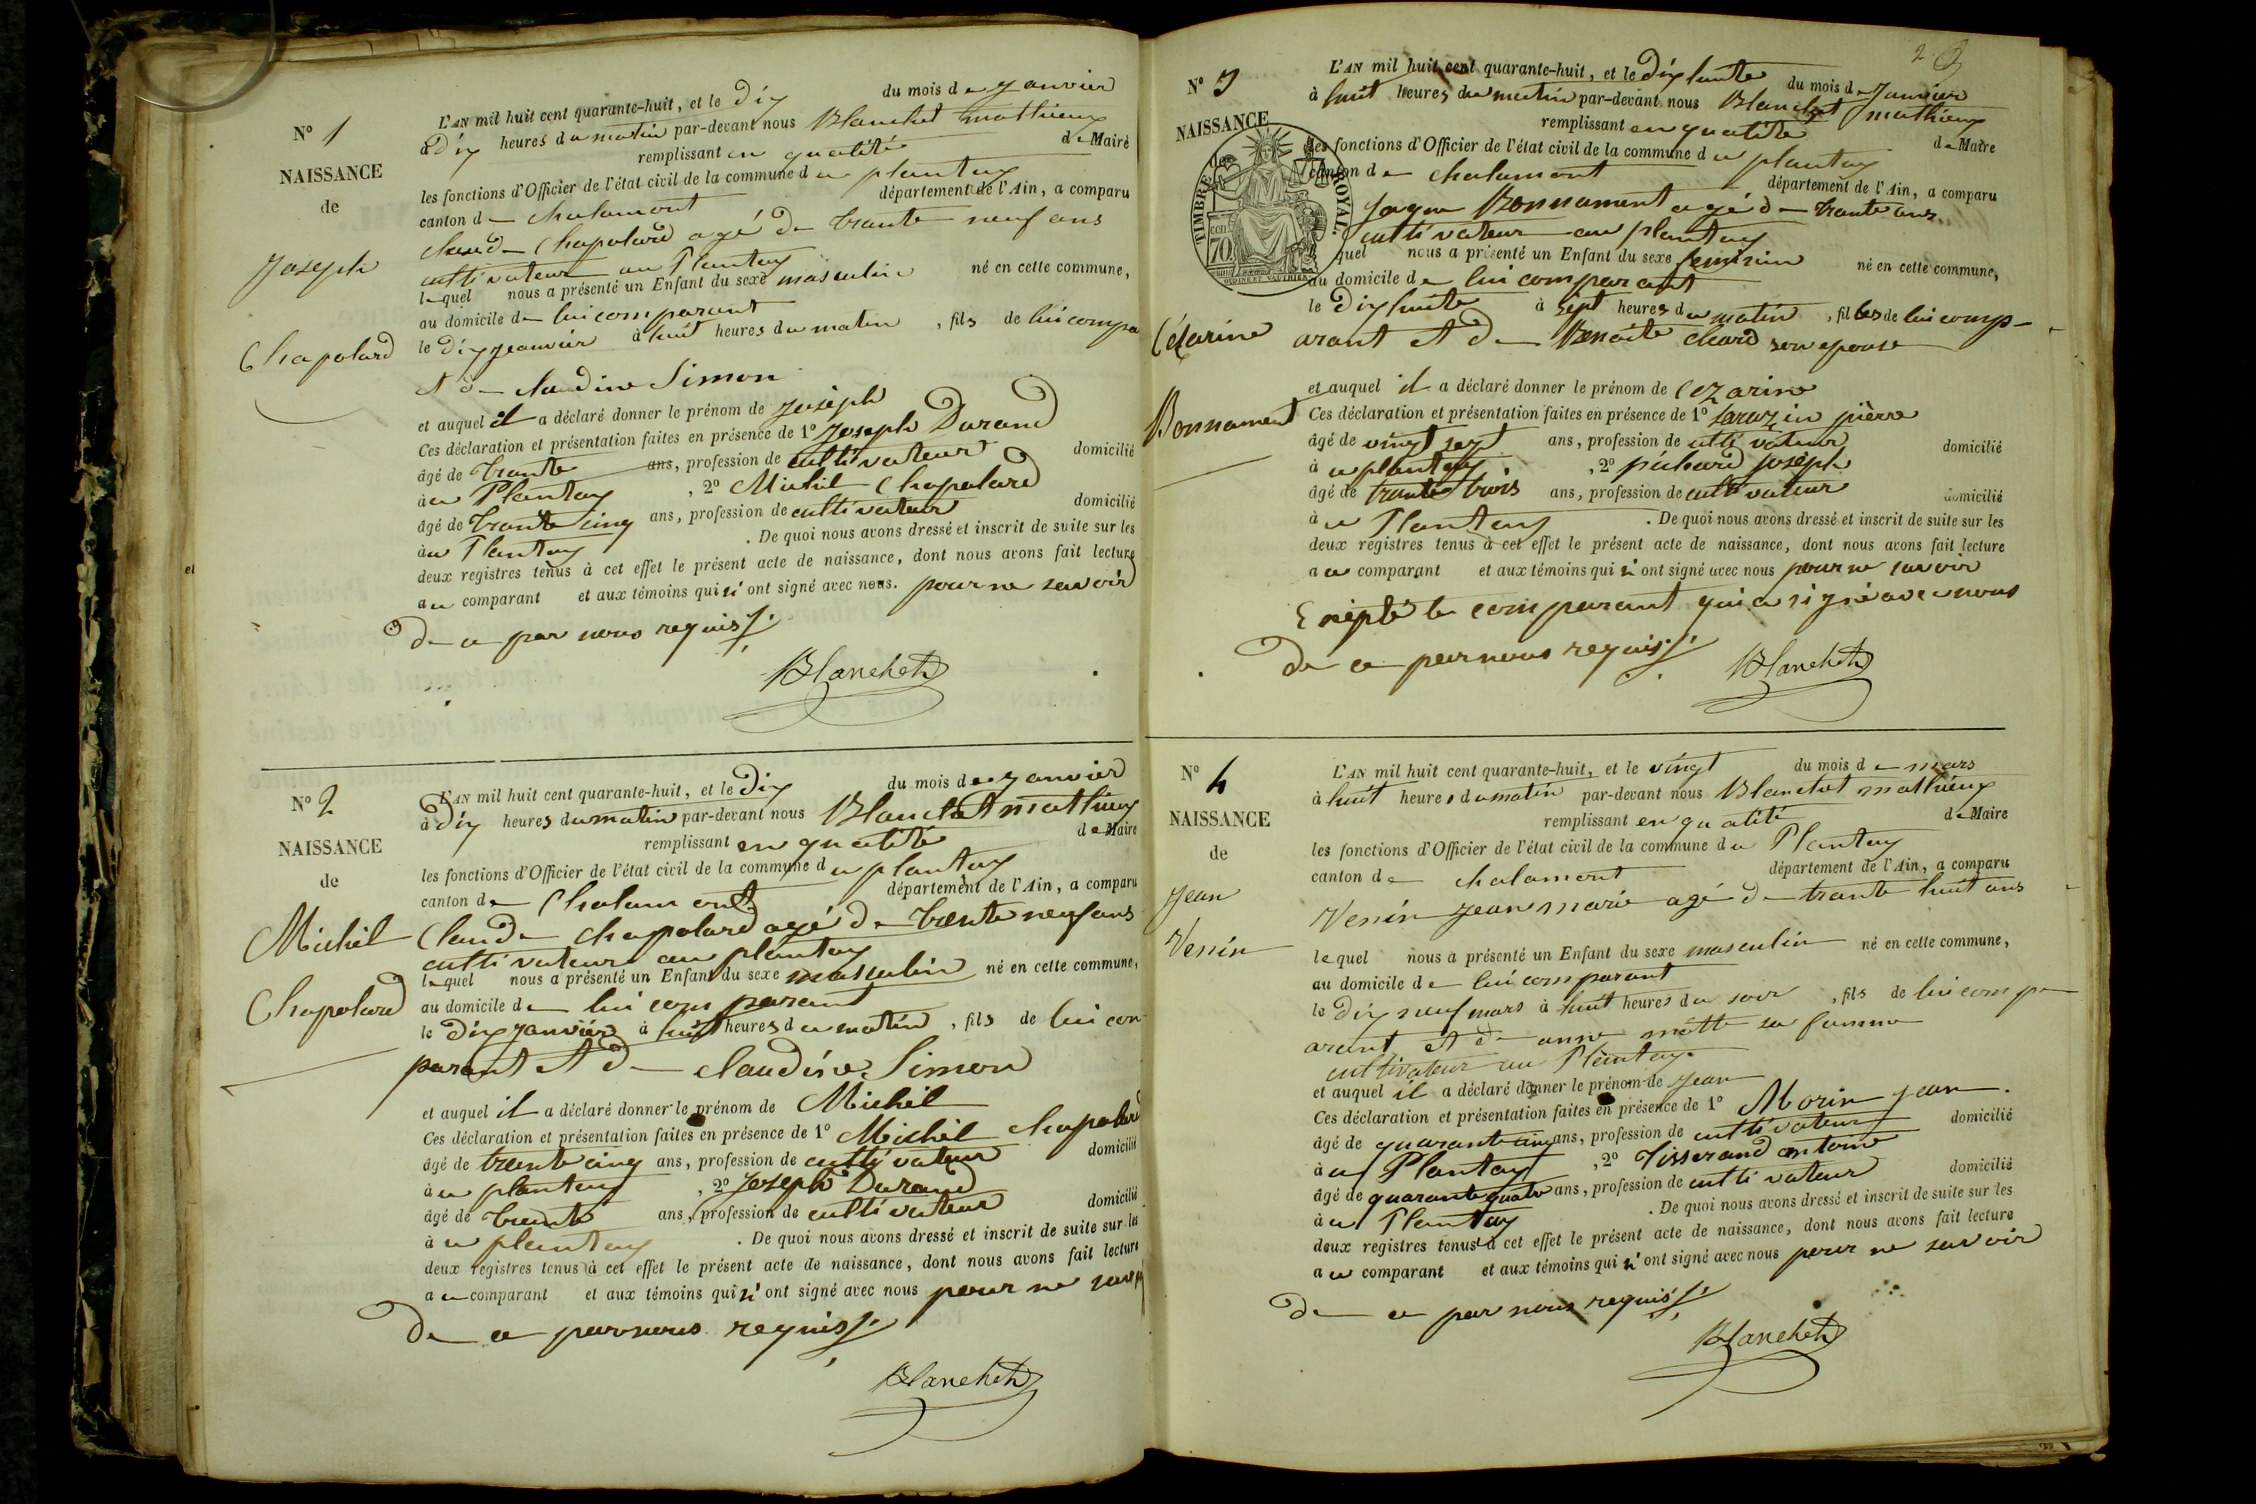 N° 1
NAISSANCE
de
Joseph
Chapolard
L'AN mil huit cent quarante-huit, et le dix du mois de janvier
à dix heures du matin par-devant nous Blanchet mathieux
remplissant en qualité de Maire
les fonctions d'Officier de l'état civil de la commune du plantay
canton de chalamont département de l'Ain, a comparu
claude Chapolard agé de trante neuf ans
cultivateur au Plantay
lequel nous a présenté un Enfant du sexe masculin né en cette commune,
au domicile de lui comparant
le dix janvier à huit heures du matin, fils de lui compa
et de claudine Simon
et auquel il a déclaré donner le prénom de joseph
Ces déclaration et présentation faites en présence de 1° joseph Durand
âgé de trante ans, profession de cultivateur domicilié
à u Plantay, 2° Michel Chapolard
âgé de trante cinq ans, profession de cultivateur domicilié
à u Plantay. De quoi nous avons dressé et inscrit de suite sur les
deux registres tenus à cet effet le présent acte de naissance, dont nous avons fait lecture
au comparant et aux témoins qui n'ont signé avec nous. pour ne savoir
de ce par nous requis ./.
Blanchet
N° 2
NAISSANCE
de
Michel
Chapolard
L'AN mil huit cent quarante-huit, et le dix du mois de janvier
à dix heures du matin par-devant nous Blanchet mathieux
remplissant en qualité de Maire
les fonctions d'Officier de l'état civil de la commune du plantay
canton de Chalamont département de l'Ain, a comparu
Claude chapolard agé de trente neuf ans
cultivateur au plantay
lequel nous a présenté un Enfant du sexe masculin né en cette commune,
au domicile de lui comparant
le dix janvier à huit heures du matin, fils de lui com
parant et de claudine Simon
et auquel il a déclaré donner le prénom de Michel
Ces déclaration et présentation faites en présence de 1° Michel chapolard
âgé de trente cinq ans, profession de cultivateur domicilié
à u plantay, 2° Joseph Durand
âgé de trente ans, profession de cultivateur domicilié
à u plantay. De quoi nous avons dressé et inscrit de suite sur les
deux registres tenus à cet effet le présent acte de naissance, dont nous avons fait lecture
au comparant et aux témoins qui n'ont signé avec nous pour ne savoir
de ce par nous requis ./.
Blanchet
2
N° 3
NAISSANCE
de
TIMBRE ROYAL.
70
Cézarine
Bonnament
L'AN mil huit cent quarante-huit, et le dix huite du mois de janvier
à huit heures du matin par-devant nous Blanchet mathieux
remplissant en qualité de Maire
les fonctions d'Officier de l'état civil de la commune du plantay
canton de chalamont département de l'Ain, a comparu
Jaque Bonnament agé de trante ans
cultivateur au plantay
quel nous a présenté un Enfant du sexe feminin né en cette commune,
au domicile de lui comparant
le dix huite à sept heures du matin, filles de lui comp-
arant et de Benoite chard son epouse
et auquel il a déclaré donner le prénom de Cezarine
Ces déclaration et présentation faites en présence de 1° Sarazin pièrre
âgé de vingt sept ans, profession de cultivateur domicilié
à u plantay, 2° pichard joseph
âgé de trante trois ans, profession de cultivateur domicilié
à u Plantay. De quoi nous avons dressé et inscrit de suite sur les
deux registres tenus à cet effet le présent acte de naissance, dont nous avons fait lecture
au comparant et aux témoins qui n'ont signé avec nous pour ne savoir
Exépté le comparant qui a signé avec nous
de ce par nous requis ./.
Blanchet
N° 4
NAISSANCE
de
Jean
Venin
L'AN mil huit cent quarante-huit, et le vingt du mois de mars
à huit heures du matin par-devant nous Blanchet mathieux
remplissant en qualité de Maire
les fonctions d'Officier de l'état civil de la commune du Plantay
canton de chalamont département de l'Ain, a comparu
Venin jean marie agé de trante huit ans
lequel nous a présenté un Enfant du sexe masculin né en cette commune,
au domicile de lui comparant
le dix neuf mars à huit heures du soir, fils de lui comp
arant et de anne mitte sa famme
cultivateur au Plantay.
et auquel il a déclaré donner le prénom de jean
Ces déclaration et présentation faites en présence de 1° Morin jean.
âgé de quarante cinq ans, profession de cultivateur domicilié
à u Plantay, 2° Tisserand antoine
âgé de quarante quatre ans, profession de cultivateur domicilié
à u Plantay. De quoi nous avons dressé et inscrit de suite sur les
deux registres tenus à cet effet le présent acte de naissance, dont nous avons fait lecture
au comparant et aux témoins qui n'ont signé avec nous pour ne savoir
de ce par nous requis ./.
Blanchet